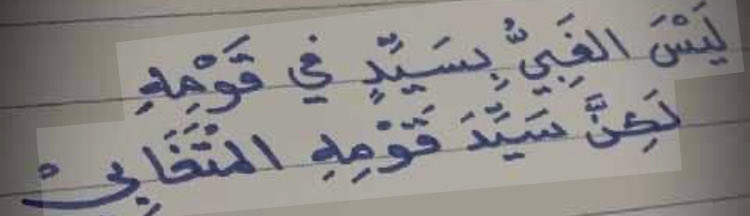 لَيْسَ الغَبِيُّ بِسَيِّدٍ في قَوْمِهِ
لَكِنَّ سَيِّدَ قَوْمِهِ المُتَغَابِيْ